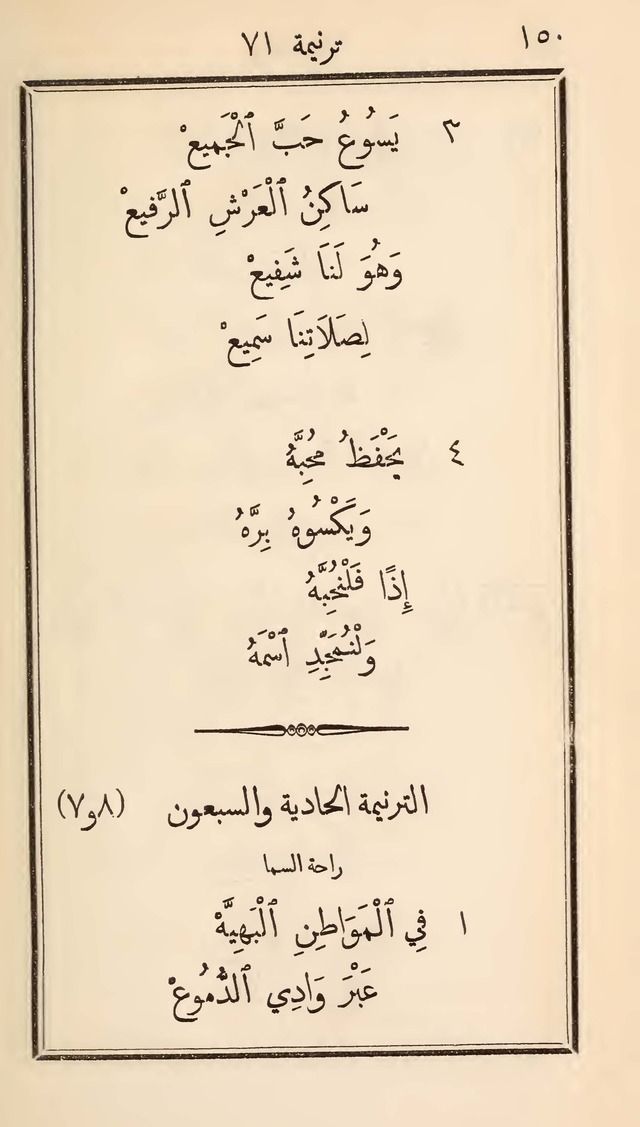 ١٥٠
ترنيمة ٧١
٣ يَسُوُعُ حَبَّ ٱلْجَمِيعْ
سَاكِنُ ٱلْعَرْشِ ٱلرَّفِيعْ
وَهُوَ لَنَا شَفِيعْ
لِصَلَاتِنَا سَمِيعْ
٤ يَحْفَظُ مُحِبَّهُ
وَيَكْسُوهُ بِرَّهُ
إِذًا فَلْنُحِبَّهُ
وَلْنُمَجِّدِ ٱسْمَهُ
الترنيمة الحادية والسبعون (٨و٧)
راحة السما
١ فِي ٱلْمَوَاطِنِ ٱلْبَهِيَّهْ
عَبْرَ وَادِي ٱلدُّمُوعْ